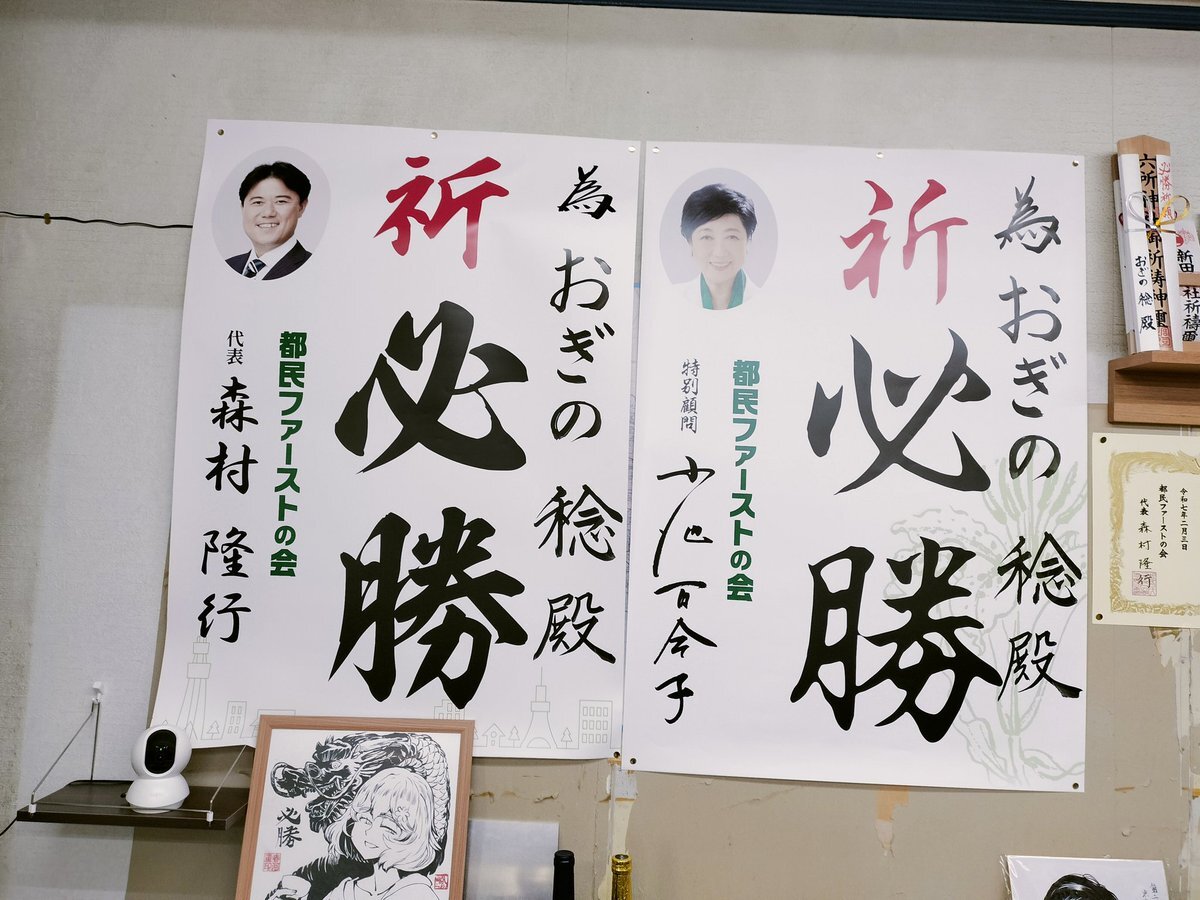 為 おぎの 稔 殿
祈 必勝
都民ファーストの会
特別顧問 小池百合子
為 おぎの 稔 殿
祈 必勝
都民ファーストの会
代表 森村 隆行
必勝祈願
六所神
御祈祷神璽
おぎの 稔 殿
新田
社祈祷
令和七年二月三日
都民ファーストの会
代表 森村 隆行
必勝